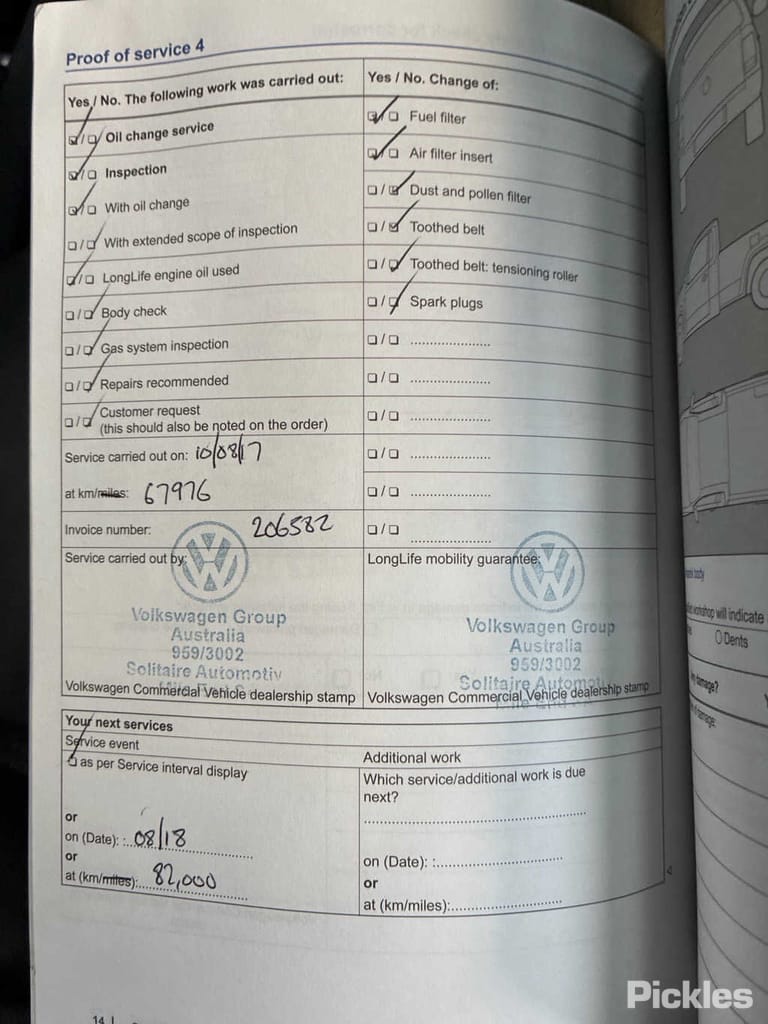 Proof of service 4
Yes / No. The following work was carried out:
Oil change service
Inspection
With oil change
With extended scope of inspection
LongLife engine oil used
Body check
Gas system inspection
Repairs recommended
Customer request
(this should also be noted on the order)
Service carried out on: 10/08/17
at km/miles: 67976
Invoice number: 206582
Service carried out by:
Volkswagen Group
Australia
959/3002
Solitaire Automotiv
Volkswagen Commercial Vehicle dealership stamp
Yes / No. Change of:
Fuel filter
Air filter insert
Dust and pollen filter
Toothed belt
Toothed belt: tensioning roller
Spark plugs
LongLife mobility guarantee:
Volkswagen Group
Australia
959/3002
Solitaire Automoti
Volkswagen Commercial Vehicle dealership stamp
Your next services
Service event
as per Service interval display
or
on (Date): : 08/18
or
at (km/miles): 82,000
Additional work
Which service/additional work is due
next?
on (Date): :
or
at (km/miles):
14
body
workshop will indicate
Dents
damage?
damage:
Pickles